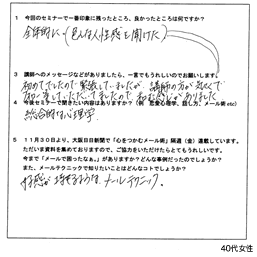 1 今回のセミナーで一番印象に残ったところ、良かったところは何ですか？
全体的に（色んな人の感を聞けた）
3 講師へのメッセージなどがありましたら、一言でもうれしいのでお願いします。
初めてでしたので緊張していましたが、講師の方が気さくで
4 今後セミナーで聞きたい内容はありますか？（例 恋愛心理学、話し方、メール術 etc）
総合的な心理学
5 11月30日より、大阪日日新聞で「心をつかむメール術」隔週（金）連載しています。
ただいま資料を集めておりますので、ご協力をいただけたらとてもうれしいです。
今まで「メールで困ったなぁ。」がありますか？どんな事例だったのでしょうか？
また、メールテクニックで知りたいことはどんなコトでしょうか？
好感が持てるようなメールテクニック。
40代女性